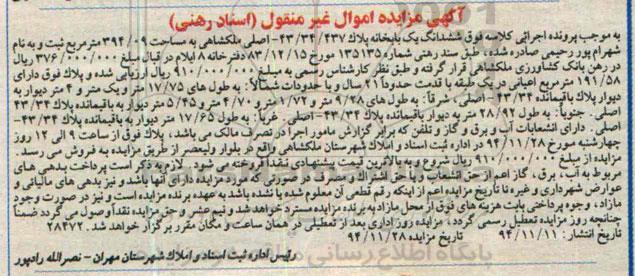 آگهی مزایده اموال غیر منقول (اسناد رهنی)
به موجب پرونده اجرائی کلاسه فوق ششدانگ یک بابخانه پلاک ۴۳/۳۴/۴۳۷- اصلی ملکشاهی به مساحت ۳۹۴/۰۹ مترمربع ثبت و به نام
شهرام پور رحیمی صادره شده، طبق سند رهنی شماره ۱۳۵۱۳۵ مورخ ۸۳/۱۲/۱۵ دفترخانه ۸ ایلام در قبال مبلغ ۳۷۶/۰۰۰/۰۰۰ ریال
در رهن بانک کشاورزی ملکشاهی قرار گرفته و طبق نظر کارشناس رسمی به مبلغ ۹۱۰/۰۰۰/۰۰۰ ریال ارزیابی شده و پلاک فوق دارای
۱۹۱/۵۸ مترمربع اعیانی در یک طبقه با قدمت حدوداً ۲۱ سال و با حدودات شمالاً: به طول های ۱۷/۷۵ متر و یک متر و ۴ متر دیوار به
دیوار پلاک باقیمانده ۴۳/۳۴ - اصلی، شرقاً: به طول های ۹/۲۸ متر و ۱/۷۲ متر و ۴/۷۰ متر و ۵/۴۵ متر دیوار به باقیمانده پلاک ۴۳/۳۴
اصلی، جنوباً: به طول ۲۸/۹۲ متر به باقیمانده پلاک ۴۳/۳۴- اصلی، غرباً: به طول ۱۷/۶۵ متر دیوار به باقیمانده پلاک ۴۳/۳۴-
اصلی، دارای انشعابات آب و برق و گاز و تلفن که برابر گزارش مامور اجرا در تصرف مالک می باشد، پلاک فوق از ساعت ۹ الی ۱۲ روز
چهارشنبه مورخ ۹۴/۱۱/۲۸ در اداره ثبت اسناد و املاک شهرستان ملکشاهی واقع در بلوار ولیعصر از طریق مزایده به فروش می رسد.
مزایده از مبلغ ۹۱۰/۰۰۰/۰۰۰ ریال شروع و به بالاترین قیمت پیشنهادی نقداً فروخته می شود. لازم به ذکر است پرداخت بدهی های
مربوط به آب، برق، گاز اعم از حق انشعاب و یا حق اشتراک و مصرف در صورتی که مورد مزایده دارای آنها باشد و نیز بدهی های مالیاتی و
عوارض شهرداری و غیره تا تاریخ مزایده اعم از اینکه رقم قطعی آن معلوم شده یا نشده باشد به عهده برنده مزایده است و نیز در صورت وجود
مازاد، وجوه پرداختی بابت هزینه های فوق از محل مازاد به برنده مزایده مسترد خواهد شد و نیم عشر و حق مزایده نقداً وصول می گردد ضمناً
چنانچه روز مزایده تعطیل رسمی گردد، مزایده روز اداری بعد از تعطیلی در همان ساعت و مکان مقرر برگزار خواهد شد. ۲۸۴۷۲
تاریخ انتشار: ۹۴/۱۱/۱۱ تاریخ مزایده ۹۴/۱۱/۲۸
رئیس اداره ثبت اسناد و املاک شهرستان مهران - نصرالله رادپور